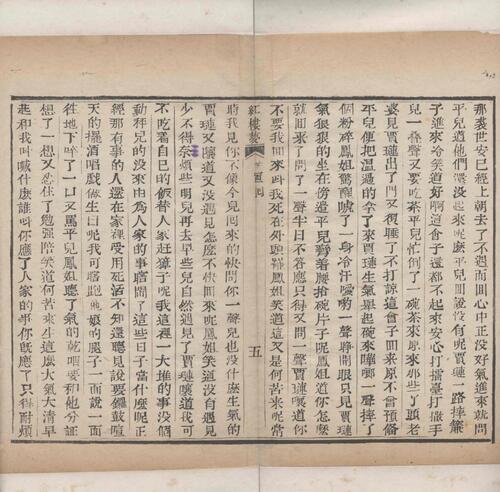 那裘世安已經上朝去了不遇而回心中正沒好氣進來就問
平兒道他們還沒起來呢麼平兒回說沒有呢賈璉一路摔簾
子進來冷笑道好啊這會子還都不起來安心打擂臺打撒手
兒一叠聲又要吃茶平兒忙倒了一碗茶來原來那些丫頭老
婆見賈璉出了門又復睡了不打諒這會子回來原不曾預備
平兒便把溫過的拿了來賈璉生氣舉起碗來嘩啷一聲摔了
個粉碎鳳姐驚醒唬了一身冷汗噯喲一聲睜開眼只見賈璉
氣狠狠的坐在傍邊平兒彎着腰拾碗片子呢鳳姐道你怎麼
就回來了問了一聲半日不答應只得又問一聲賈璉嚷道你
不要我回來叫我死在外頭罷鳳姐笑道這又是何苦來呢常
紅樓夢
五
時我見你不像今兒回來的快問你一聲兒也沒什麼生氣的
賈璉又嚷道又沒遇見怎麼不快回來呢鳳姐笑道沒有遇見
少不得奈煩些明兒再去早些兒自然遇見了賈璉嚷道我可
不吃着自己的飯替人家赶獐子呢我這裡一大堆的事沒個
動秤兒的沒來由為人家的事瞎鬧了這些日子當什麼呢正
經那有事的人還在家裡受用死活不知還聽見說要鑼鼓喧
天的擺酒唱戲做生日呢我可瞎跑他娘的腿子一面說一面
往地下啐了一口又罵平兒鳳姐聽了氣的乾咽要和他分証
想了一想又忍住了勉強陪笑道何苦來生這麼大氣大清早
起和我叫喊什麼誰叫你應了人家的事你既應了只得耐煩